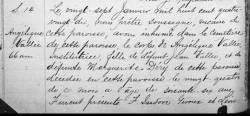 S. 12
Angélique
Vallée
66 ans
Le vingt sept Janvier mil huit cent quatre
vingt dix, nous prêtre soussigné, vicaire de
cette paroisse, avons inhumé dans le cimetière
de cette paroisse le corps de Angélique Vallée,
Institutrice, fille de défunt Jean Vallée, et de
défunte Marguerite Déry de cette paroisse
décédée en cette paroisse le vingt quatre
de ce mois à l'âge de soixante six ans
Furent présents F.